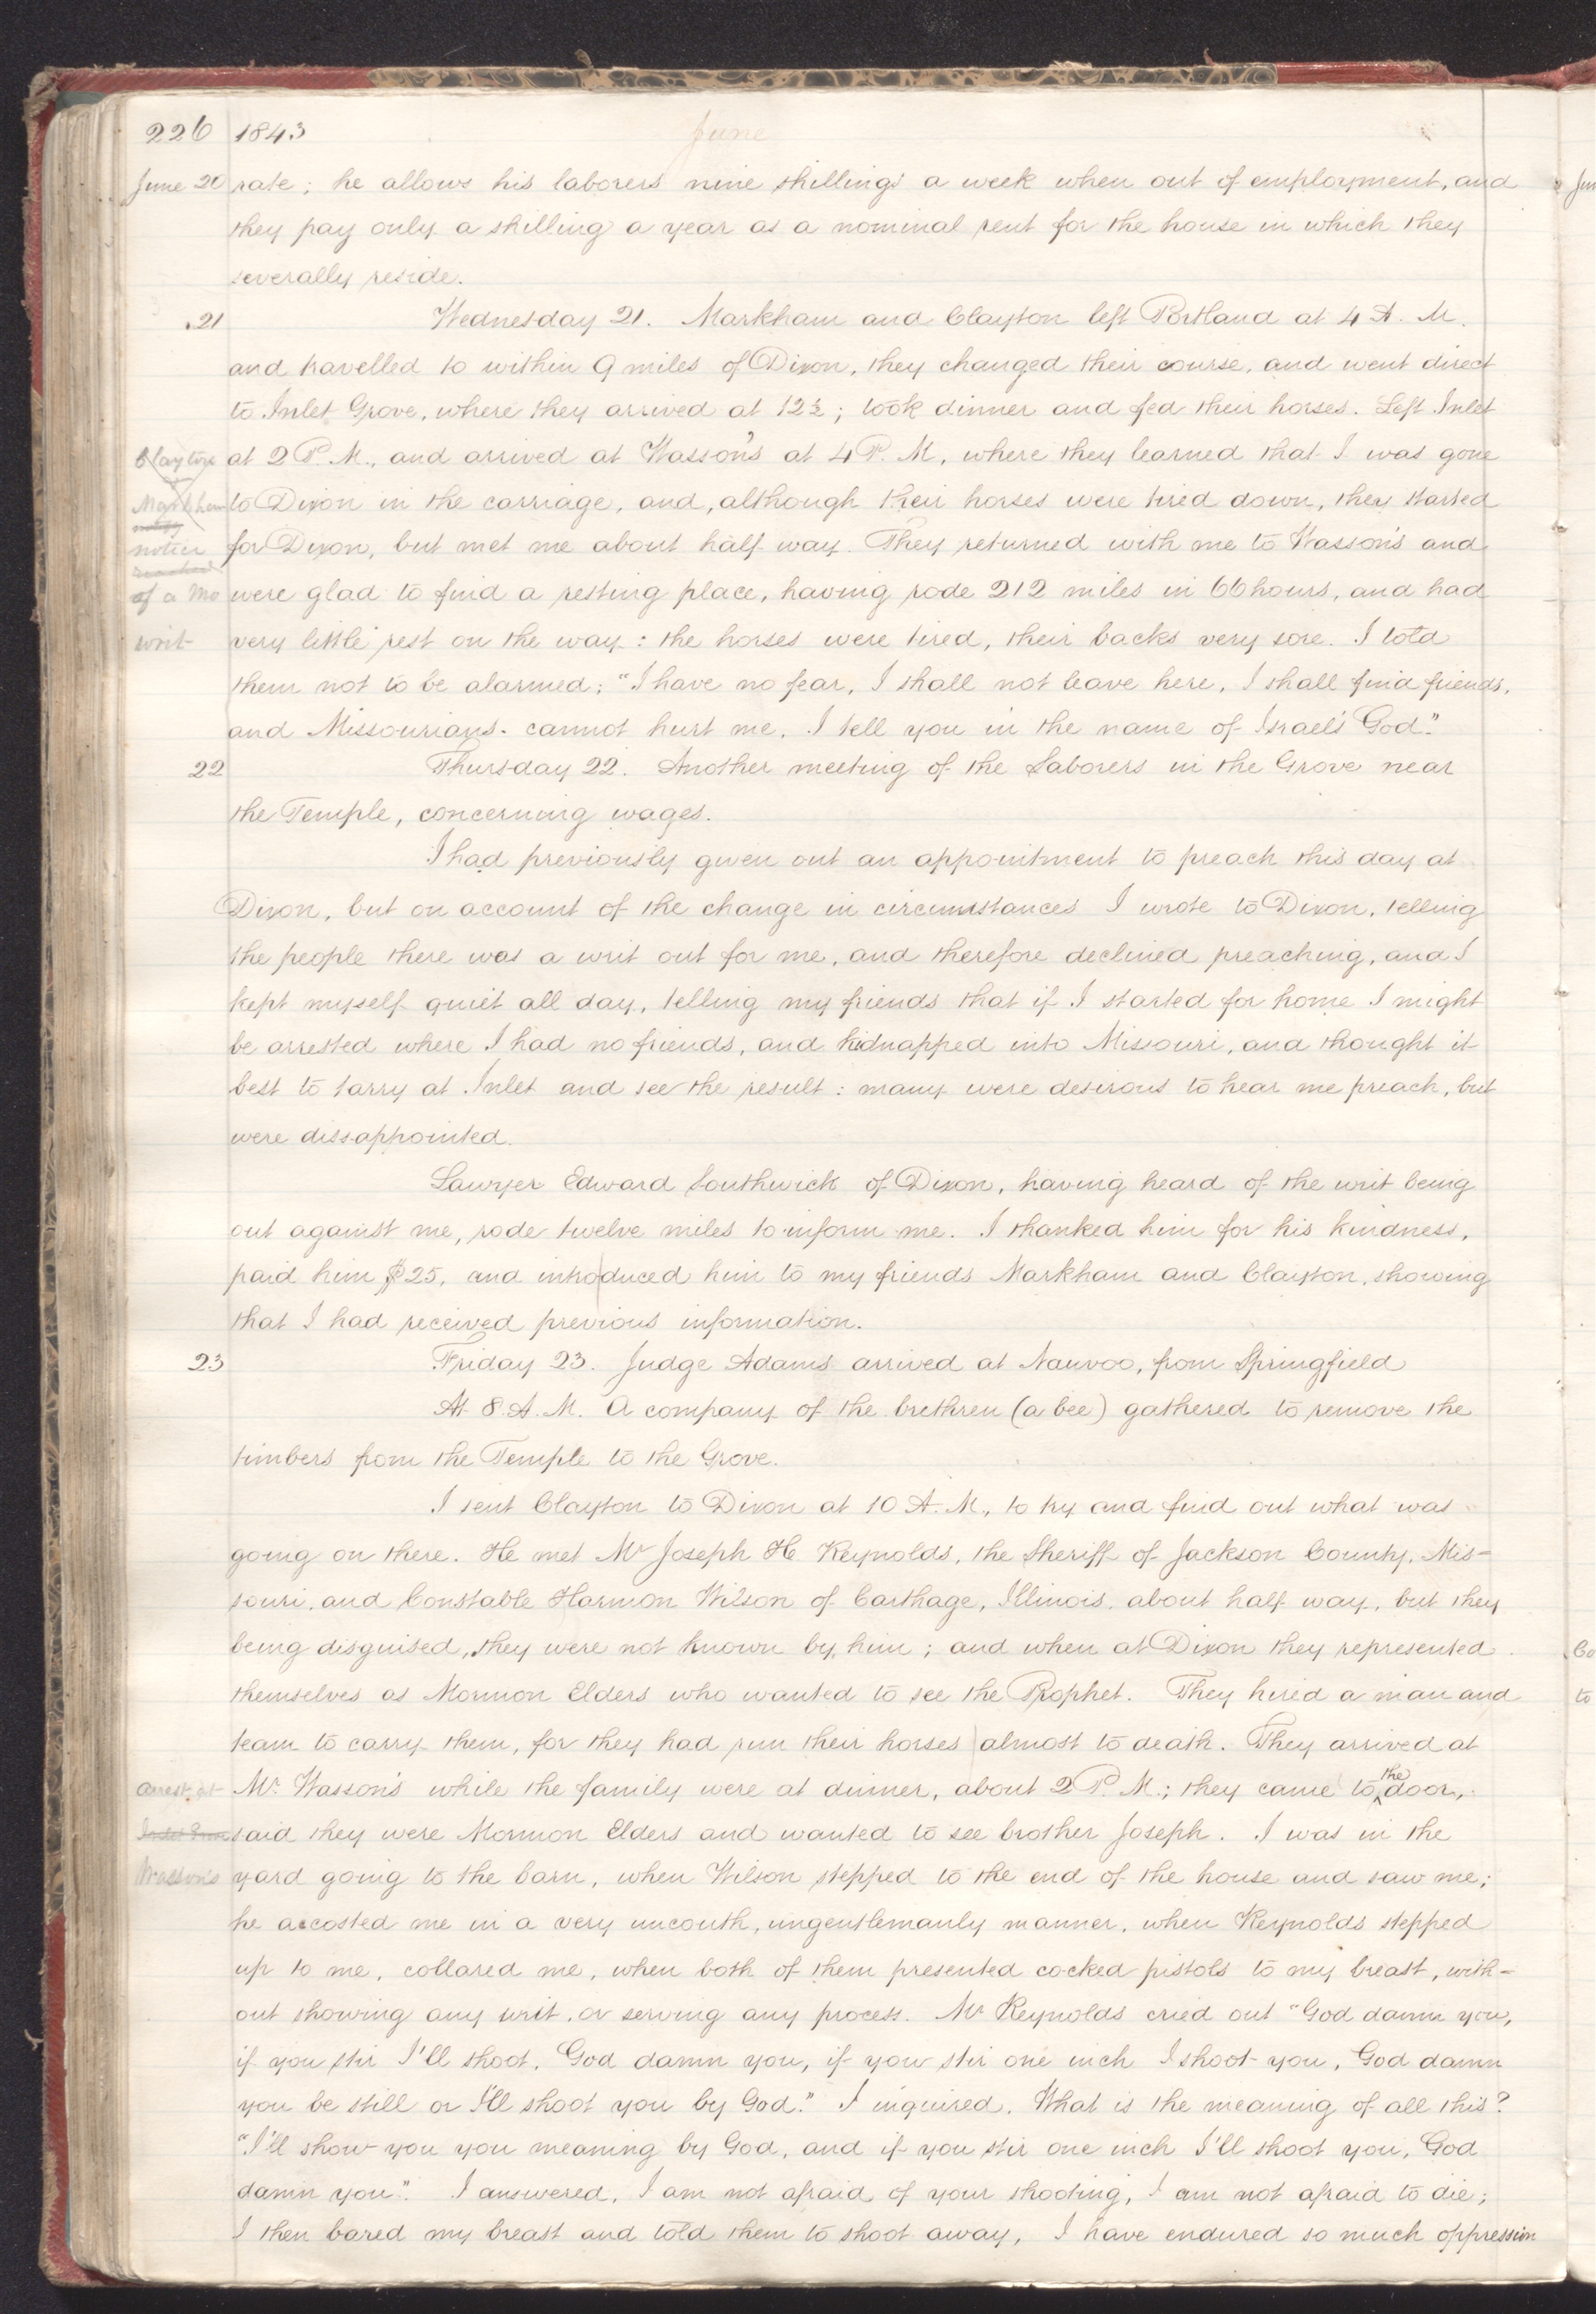 226 1843 June
June 20 rate; he allows his laborers nine shillings a week when out of employment, and
they pay only a shilling a year as a nominal rent for the house in which they
severally reside.
21 Wednesday 21. Markham and Clayton left Portland at 4 A. M.
and travelled to within 9 miles of Dixon, they changed their course, and went direct
to Inlet Grove, where they arrived at 12½; took dinner and fed their horses. Left Inlet
Clayton at 2 P. M., and arrived at Wasson's at 4 P. M, where they learned that I was gone
Markham to Dixon in the carriage, and, although their horses were tired down, they started
notice for Dixon, but met me about half way. They returned with me to Wasson's and
of a Mo were glad to find a resting place, having rode 212 miles in 66 hours, and had
writ very little rest on the way: the horses were tired, their backs very sore. I told
them not to be alarmed; "I have no fear, I shall not leave here, I shall find friends,
and Missourians cannot hurt me, I tell you in the name of Israel's God."
22 Thursday 22. Another meeting of the Laborers in the Grove near
the Temple, concerning wages.
I had previously given out an appointment to preach this day at
Dixon, but on account of the change in circumstances I wrote to Dixon, telling
the people there was a writ out for me, and therefore declined preaching, and I
kept myself quiet all day, telling my friends that if I started for home I might
be arrested where I had no friends, and kidnapped into Missouri, and thought it
best to tarry at Inlet and see the result: many were desirous to hear me preach, but
were dissappointed.
Lawyer Edward Southwick of Dixon, having heard of the writ being
out against me, rode twelve miles to inform me. I thanked him for his kindness,
paid him $25, and introduced him to my friends Markham and Clayton, showing
that I had received previous information.
23 Friday 23. Judge Adams arrived at Nauvoo, from Springfield
At 8 A. M. A company of the brethren (a bee) gathered to remove the
timbers from the Temple to the Grove.
I sent Clayton to Dixon at 10 A. M., to try and find out what was
going on there. He met Mr Joseph H. Reynolds, the Sheriff of Jackson County, Mis-
souri, and Constable Harmon Wilson of Carthage, Illinois, about half way, but they
being disguised, they were not known by him; and when at Dixon they represented
themselves as Mormon Elders who wanted to see the Prophet. They hired a man and
team to carry them, for they had run their horses almost to death. They arrived at
arrest at Mr. Wasson's while the family were at dinner, about 2 P. M.; they came to the door,
said they were Mormon Elders and wanted to see brother Joseph. I was in the
Wasson's yard going to the barn, when Wilson stepped to the end of the house and saw me;
he accosted me in a very uncouth, ungentlemanly manner, when Reynolds stepped
up to me, collared me, when both of them presented cocked pistols to my breast, with-
out showing any writ, or serving any process. Mr Reynolds cried out "God damn you,
if you stir I'll shoot, God damn you, if you stir one inch I shoot you, God damn
you be still or I'll shoot you by God." I inquired, What is the meaning of all this?
"I'll show you you meaning by God, and if you stir one inch I'll shoot you, God
damn you". I answered, I am not afraid of your shooting, I am not afraid to die;
I then bared my breast and told them to shoot away, I have endured so much oppression